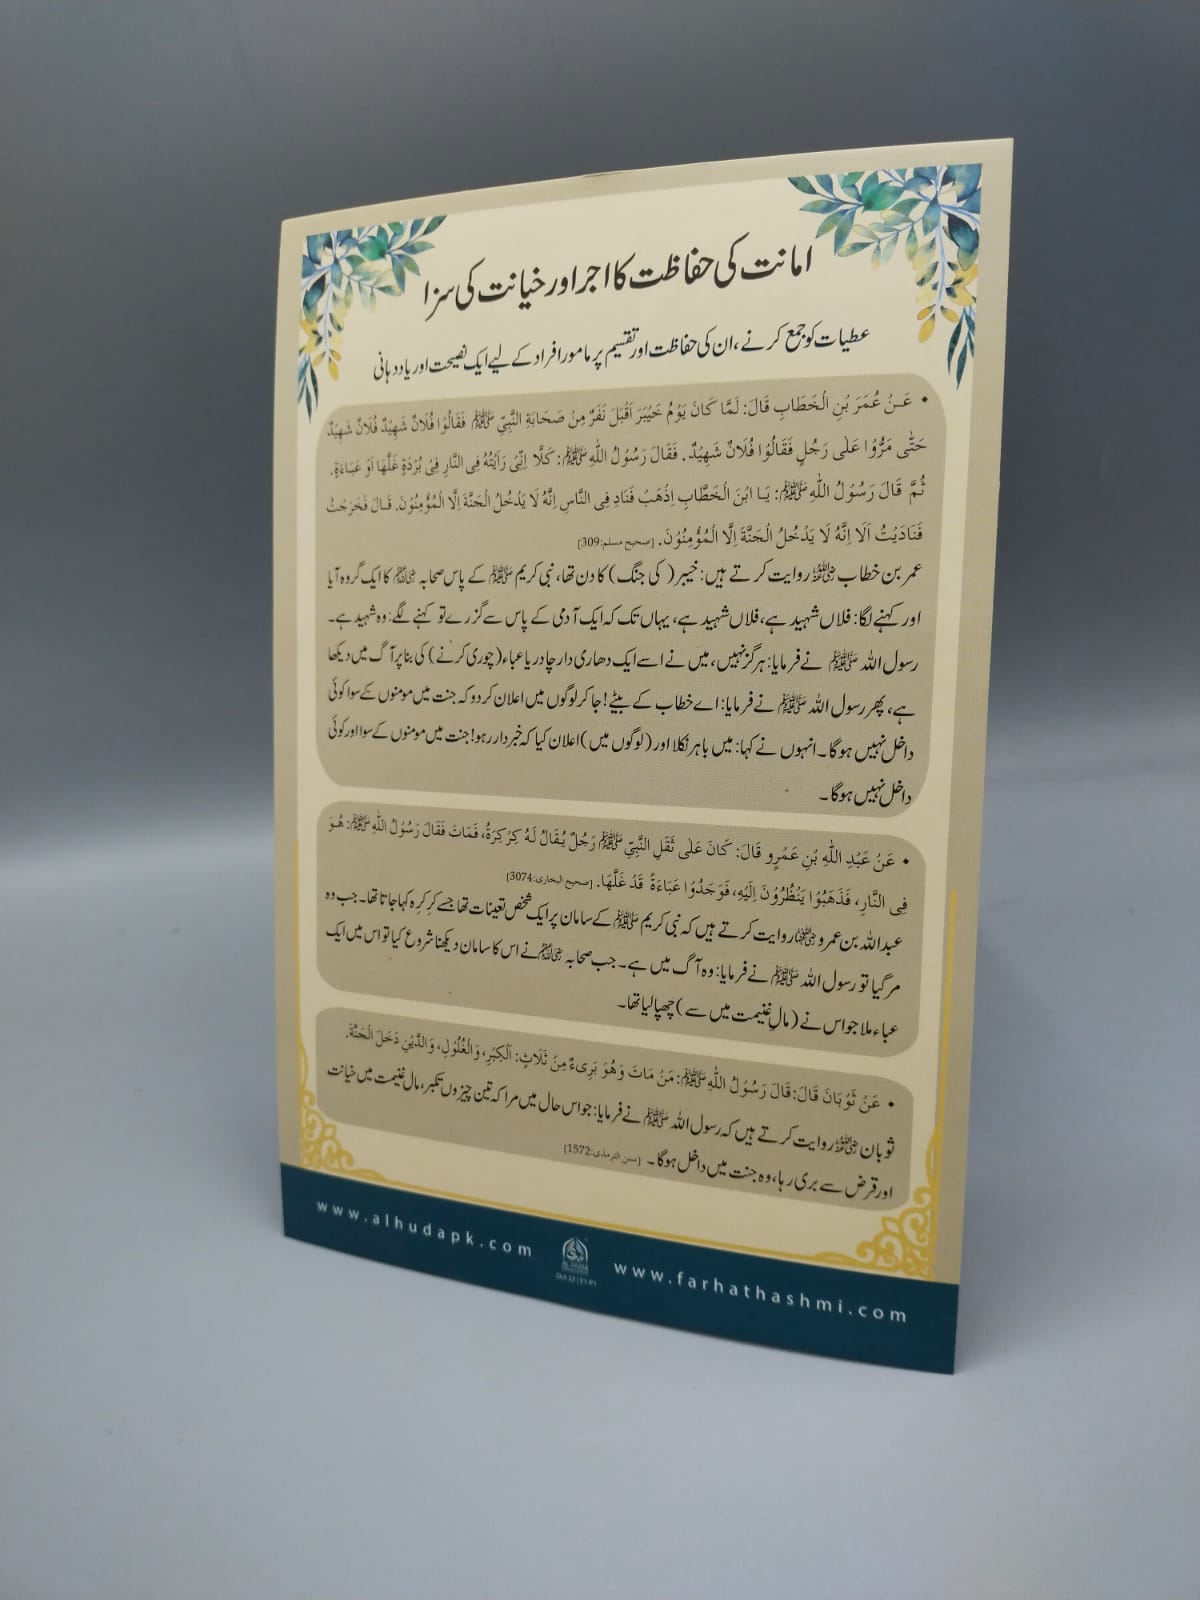 امانت کی حفاظت کا اجر اور خیانت کی سزا
عطیات کو جمع کرنے، ان کی حفاظت اور تقسیم پر مامور افراد کے لیے ایک نصیحت اور یاددہانی
• عَنْ عُمَرَ بْنِ الْخَطَابِ قَالَ: لَمَّا كَانَ يَوْمُ خَيْبَرَ اَقْبَلَ نَفَرٌ مِنْ صَحَابَةِ النَّبِيِّ ﷺ فَقَالُوْا فُلَانٌ شَهِيْدٌ فُلَانٌ شَهِيْدٌ
حَتّٰى مَرُّوْا عَلٰى رَجُلٍ فَقَالُوْا فُلَانٌ شَهِيْدٌ. فَقَالَ رَسُوْلُ اللّٰهِ ﷺ: كَلَّا اِنِّيْ رَاَيْتُهُ فِي النَّارِ فِيْ بُرْدَةٍ غَلَّهَا اَوْ عَبَاءَةٍ.
ثُمَّ قَالَ رَسُوْلُ اللّٰهِ ﷺ: يَا ابْنَ الْخَطَّابِ اِذْهَبْ فَنَادِ فِي النَّاسِ اِنَّهُ لَا يَدْخُلُ الْجَنَّةَ اِلَّا الْمُؤْمِنُوْنَ. قَالَ فَخَرَجْتُ
فَنَادَيْتُ اَلَا اِنَّهُ لَا يَدْخُلُ الْجَنَّةَ اِلَّا الْمُؤْمِنُوْنَ. [صحیح مسلم:309]
عمر بن خطاب رضی اللہ عنہ روایت کرتے ہیں: خیبر (کی جنگ) کا دن تھا، نبی کریم ﷺ کے پاس صحابہ رضی اللہ عنہم کا ایک گروہ آیا
اور کہنے لگا: فلاں شہید ہے، فلاں شہید ہے، یہاں تک کہ ایک آدمی کے پاس سے گزرے تو کہنے لگے: وہ شہید ہے۔
رسول اللہ ﷺ نے فرمایا: ہرگز نہیں، میں نے اسے ایک دھاری دار چادر یا عباء (چوری کرنے) کی بنا پر آگ میں دیکھا
ہے، پھر رسول اللہ ﷺ نے فرمایا: اے خطاب کے بیٹے! جا کر لوگوں میں اعلان کر دو کہ جنت میں مومنوں کے سوا کوئی
داخل نہیں ہوگا۔ انہوں نے کہا: میں باہر نکلا اور (لوگوں میں) اعلان کیا کہ خبردار رہو! جنت میں مومنوں کے سوا اور کوئی
داخل نہیں ہوگا۔
• عَنْ عَبْدِ اللّٰهِ بْنِ عَمْرٍو قَالَ: كَانَ عَلٰى ثَقَلِ النَّبِيِّ ﷺ رَجُلٌ يُقَالُ لَهُ كِرْكِرَةُ، فَمَاتَ فَقَالَ رَسُوْلُ اللّٰهِ ﷺ: هُوَ
فِي النَّارِ، فَذَهَبُوْا يَنْظُرُوْنَ اِلَيْهِ، فَوَجَدُوْا عَبَاءَةً قَدْ غَلَّهَا. [صحیح البخاری:3074]
عبداللہ بن عمرو رضی اللہ عنہما روایت کرتے ہیں کہ نبی کریم ﷺ کے سامان پر ایک شخص تعینات تھا جسے کرکرہ کہا جاتا تھا۔ جب وہ
مر گیا تو رسول اللہ ﷺ نے فرمایا: وہ آگ میں ہے۔ جب صحابہ رضی اللہ عنہم نے اس کا سامان دیکھنا شروع کیا تو اس میں ایک
عباء ملا جو اس نے (مالِ غنیمت میں سے) چھپا لیا تھا۔
• عَنْ ثَوْبَانَ قَالَ: قَالَ رَسُوْلُ اللّٰهِ ﷺ: مَنْ مَاتَ وَهُوَ بَرِيءٌ مِنْ ثَلَاثٍ: اَلْكِبْرِ، وَالْغُلُوْلِ، وَالدَّيْنِ دَخَلَ الْجَنَّةَ.
ثوبان رضی اللہ عنہ روایت کرتے ہیں کہ رسول اللہ ﷺ نے فرمایا: جو اس حال میں مرا کہ تین چیزوں تکبر، مال غنیمت میں خیانت
اور قرض سے بری رہا، وہ جنت میں داخل ہوگا۔ [سنن الترمذی:1572]
www.alhudapk.com
AL-HUDA
Oct 22 | E1-P1
www.farhathashmi.com